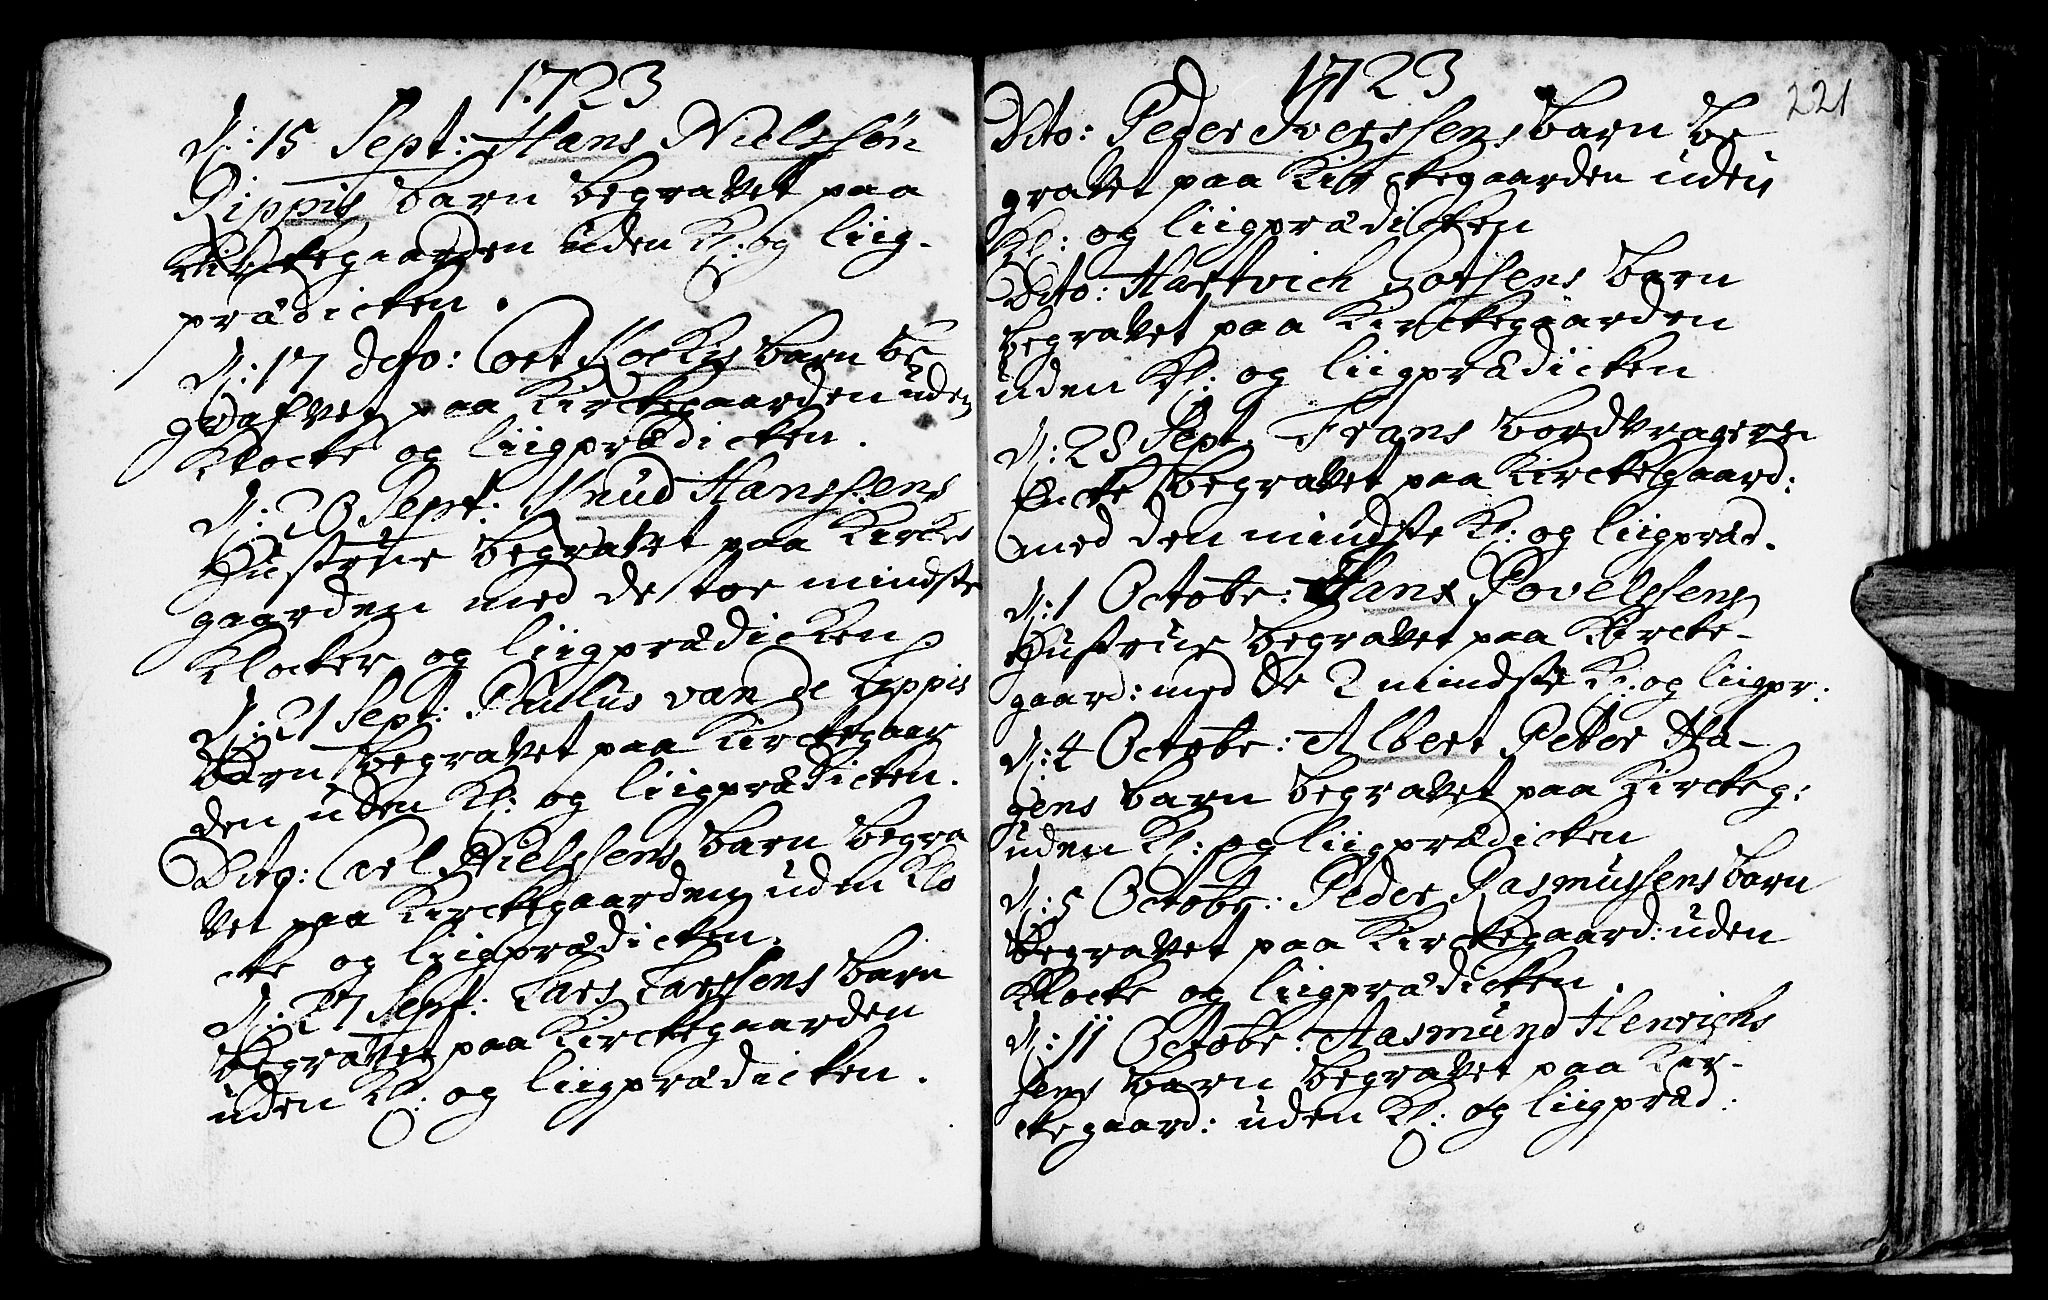 1723
D: 15 Sept: Hans Nielssøn
Rippis barn begravet paa
Kirckegaarden uden Kl: og liig-
prædicken.
D: 17 dito: Cort barn be
grafvet paa Kirckegaarden uden
Klocke og liigprædicken.
D: 20 Sept: Knud Hanssens
Hustrue begravet paa Kircke
gaarden med de toe mindste
Klocker og liigprædicken
D: 21 Sept: Paulus van de Lippis
barn begravet paa Kirckegaar
den uden Kl: og liigprædicken.
Dito: Carl Nielssens barn begra
vet paa Kirckegaarden uden Klo
cke og liigprædicken.
D: 27 Sept: Lars Larssens barn
begravet paa Kirckegaarden
uden Kl: og liigprædicken.
1723
221
Dito: Peder Iverssens barn be
gravet paa Kirckegaarden uden
Kl: og liigprædicken
Dito: Hartvich barn
begravet paa Kirckegaarden
uden Kl: og liigprædicken
D: 28 Sept. Frans bordvragers
Encke begravet paa Kirckegaard:
med den mindste Kl: og liigpræd.
D: 1 Octobr: Hans Povelssens
Hustrue begravet paa Kircke-
gaard: med de 2 mindste Kl: og liigpr:
D: 4 Octobr: Albert Peter Ha-
gens barn begravet paa Kirckeg:
uden Kl: og liigprædicken
D: 5 Octobr: Peder Rasmussens barn
begravet paa Kirckegaard: uden
Klocke og liigprædicken.
D: 11 Octobr: Aasmund Henrichs
sens barn begravet paa Kir-
ckegaard: uden Kl: og liigpræd: